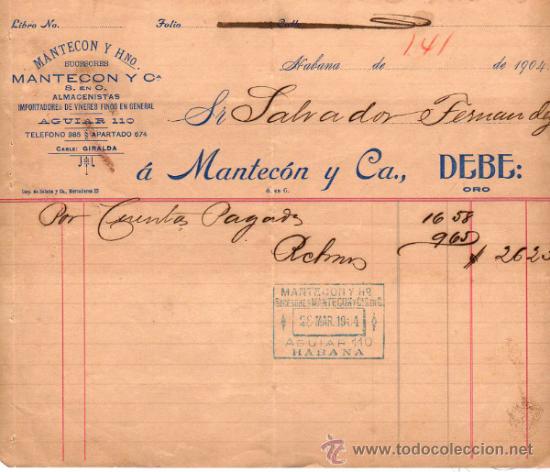 Libro No. Folio
MANTECON Y HNO.
SUCESORES
MANTECON Y Cª
S. EN C.
ALMACENISTAS
IMPORTADORES DE VIVERES FINOS EN GENERAL
AGUIAR 110
TELEFONO 885 APARTADO 674
CABLE: GIRALDA
141
Habana de de 1904
Sr Salvador Fernandez
á Mantecón y Ca., DEBE:
S. en C.
ORO
Por Cuentas Pagadas 16 58
9 65
$ 26 23
MANTECON Y Hº
SUCESORES MANTECON y Cª S EN C.
28 MAR. 1904
AGUIAR 110
HABANA
www.todocoleccion.net